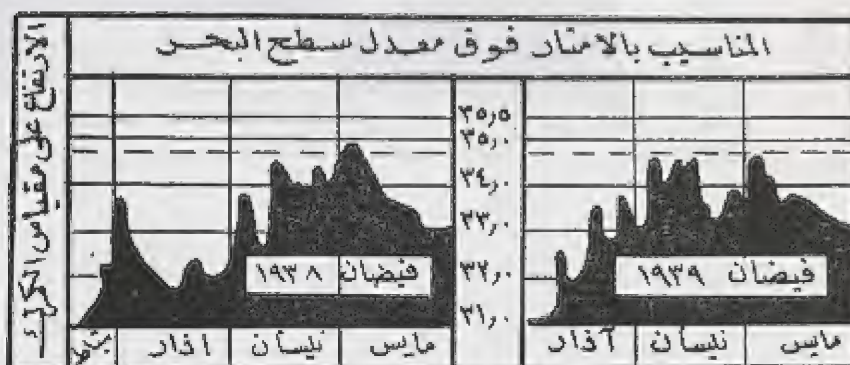 المناسيب بالامتار فوق معدل سطح البحر
الارتفاع على مقياس الكرك
٣٥,٥
٣٥,٠
٣٤,٠
٣٣,٠
٣٢,٠
٣١,٠
فيضان ١٩٣٨
فيضان ١٩٣٩
شباط
اذار
نيسان
مايس
آذار
نيسان
مايس